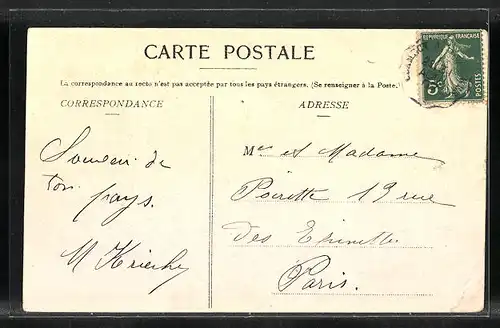 CARTE POSTALE
La correspondance au recto n'est pas acceptée par tous les pays étrangers. (Se renseigner à la Poste.)
CORRESPONDANCE
ADRESSE
REPUBLIQUE FRANÇAISE
5c
POSTES
Souvenir de
ton pays.
M
Mr et Madame
Poirette 19 rue
des Epinettes
Paris.